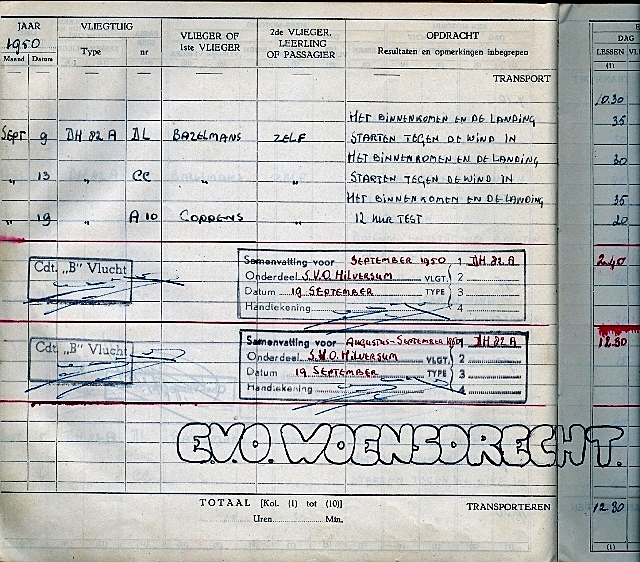 JAAR VLIEGTUIG VLIEGER OF 1ste VLIEGER 2de VLIEGER, LEERLING OF PASSAGIER OPDRACHT DAG
1950 Type nr Resultaten en opmerkingen inbegrepen LESSEN VL
Maand Datum (1)
TRANSPORT 10.30
HET BINNENKOMEN EN DE LANDING 35
SEPT 9 DH 82 A DL BAZELMANS ZELF STARTEN TEGEN DE WIND IN
HET BINNENKOMEN EN DE LANDING 30
„ 13 „ CC „ „ STARTEN TEGEN DE WIND IN
HET BINNENKOMEN EN DE LANDING 35
„ 19 „ A 10 COPPENS „ 12 UUR TEST 20
Cdt. „B" Vlucht
Samenvatting voor SEPTEMBER 1950 1 DH 82 A 2.40
Onderdeel S.V.O. HILVERSUM VLGT. 2
Datum 19 SEPTEMBER TYPE 3
Handtekening 4
Cdt. „B" Vlucht
Samenvatting voor AUGUSTUS-SEPTEMBER 1950 1 DH 82 A 12.50
Onderdeel S.V.O. HILVERSUM VLGT. 2
Datum 19 SEPTEMBER TYPE 3
Handtekening 4
E.V.O. WOENSDRECHT.
TOTAAL [Kol. (1) tot (10)] TRANSPORTEREN
Uren Min.
(1)